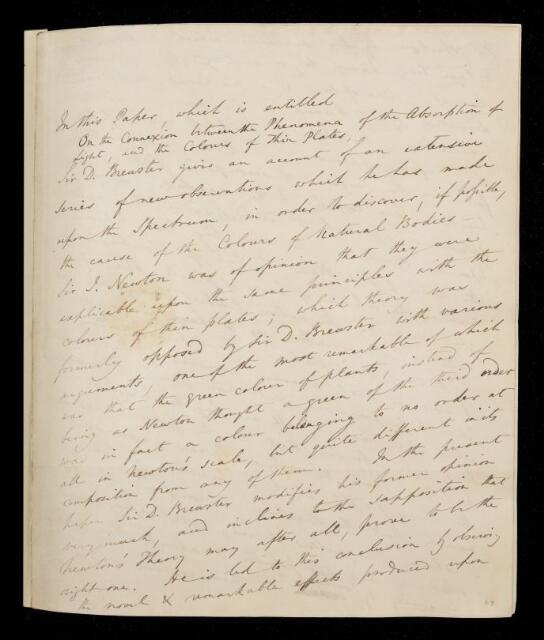 In this Paper, which is entitled
On the Connexion between the Phenomena of the Absorption of
Light, and the Colours of Thin Plates,
Sir D. Brewster gives an account of an extensive
series of new observations which he has made
upon the Spectrum, in order to discover, if possible,
the cause of the Colours of Natural Bodies —
Sir I. Newton was of opinion that they were
explicable upon the same principles with the
colours of thin plates; which theory was
formerly opposed by Sir D. Brewster with various
arguments, one of the most remarkable of which
was that the green colour of plants, instead of
being as Newton thought a green of the third order
was in fact a colour belonging to no order at
all in Newton's scale, but quite different in its
composition from any of them. In the present
paper Sir D. Brewster modifies his former opinion
very much, and inclines to the supposition that
Newton's Theory may after all, prove to be the
right one. He is led to this conclusion by observing
the novel & remarkable effects produced upon